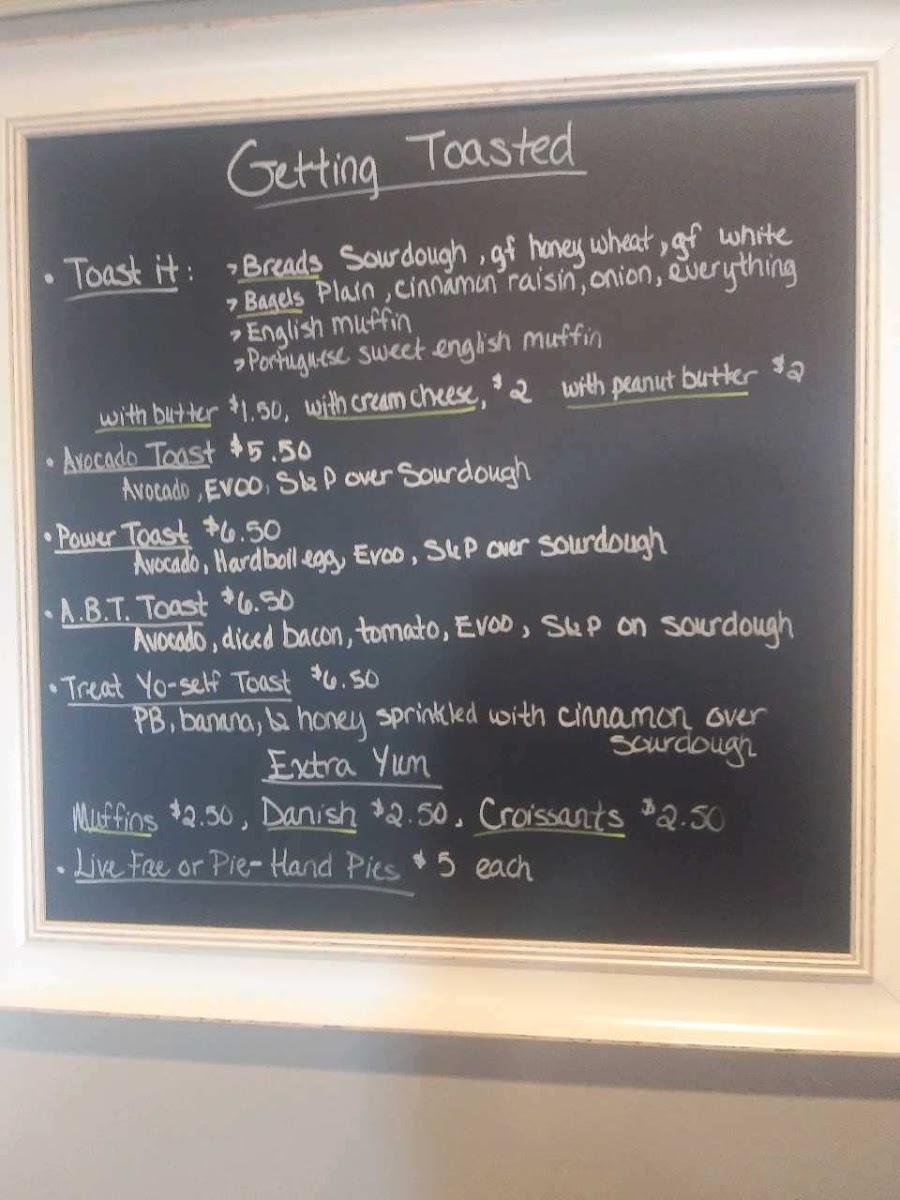 Getting Toasted
• Toast it: > Breads Sourdough, gf honey wheat, gf white
> Bagels Plain, cinnamon raisin, onion, everything
> English muffin
> Portuguese sweet english muffin
with butter $1.50, with cream cheese, $2 with peanut butter $2
• Avocado Toast $5.50
Avocado, EVOO, S&P over Sourdough
• Power Toast $6.50
Avocado, Hardboil egg, EVOO, S&P over sourdough
• A.B.T. Toast $6.50
Avocado, diced bacon, tomato, EVOO, S&P on sourdough
• Treat Yo-self Toast $6.50
PB, banana, & honey sprinkled with cinnamon over
sourdough
Extra Yum
Muffins $2.50, Danish $2.50, Croissants $2.50
• Live Free or Pie-Hand Pies $5 each